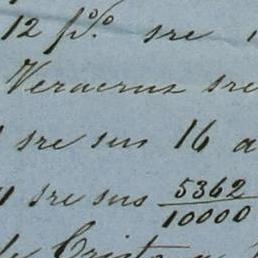 12 p%. sre
Veracruz sre
sre sus 16 a
sre sus 5362/10000
de Cristo a